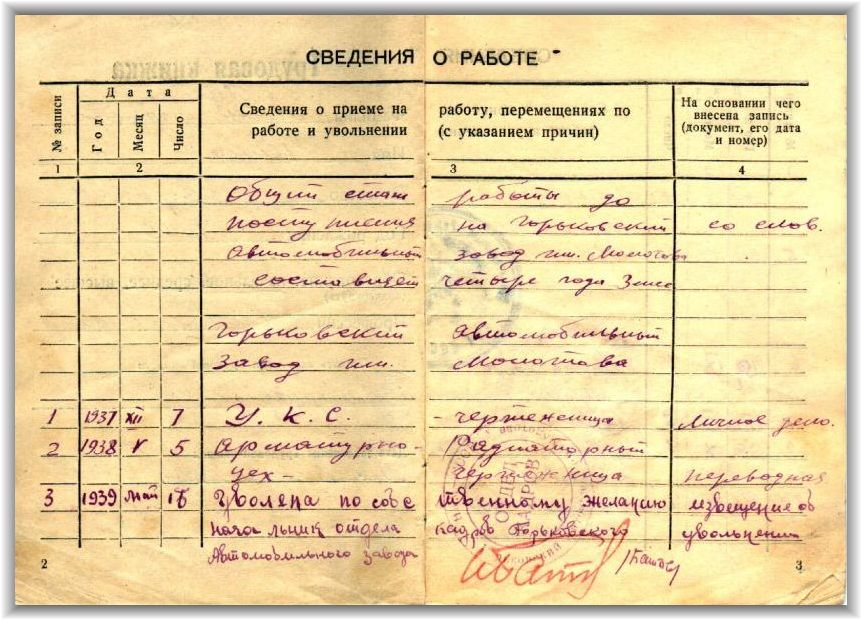 СВЕДЕНИЯ О РАБОТЕ
№ записи
Дата
Год
Месяц
Число
Сведения о приеме на работу, перемещениях по
работе и увольнении (с указанием причин)
На основании чего
внесена запись
(документ, его дата
и номер)
1 2 3 4
Общий стаж работы до
поступления на Горьковский со слов.
автомобильный завод им. Молотова
составляет четыре года
Горьковский автомобильный
завод им. Молотова
1 1937 XII 7 У.К.С. - чертежница Личное дело.
2 1938 V 5 Арматурно- радиаторный
цех - чертежница переводная
3 1939 май 16 Уволена по собственному желанию извещение об
начальник отдела кадров Горьковского увольнении
Автомобильного завода
2 3